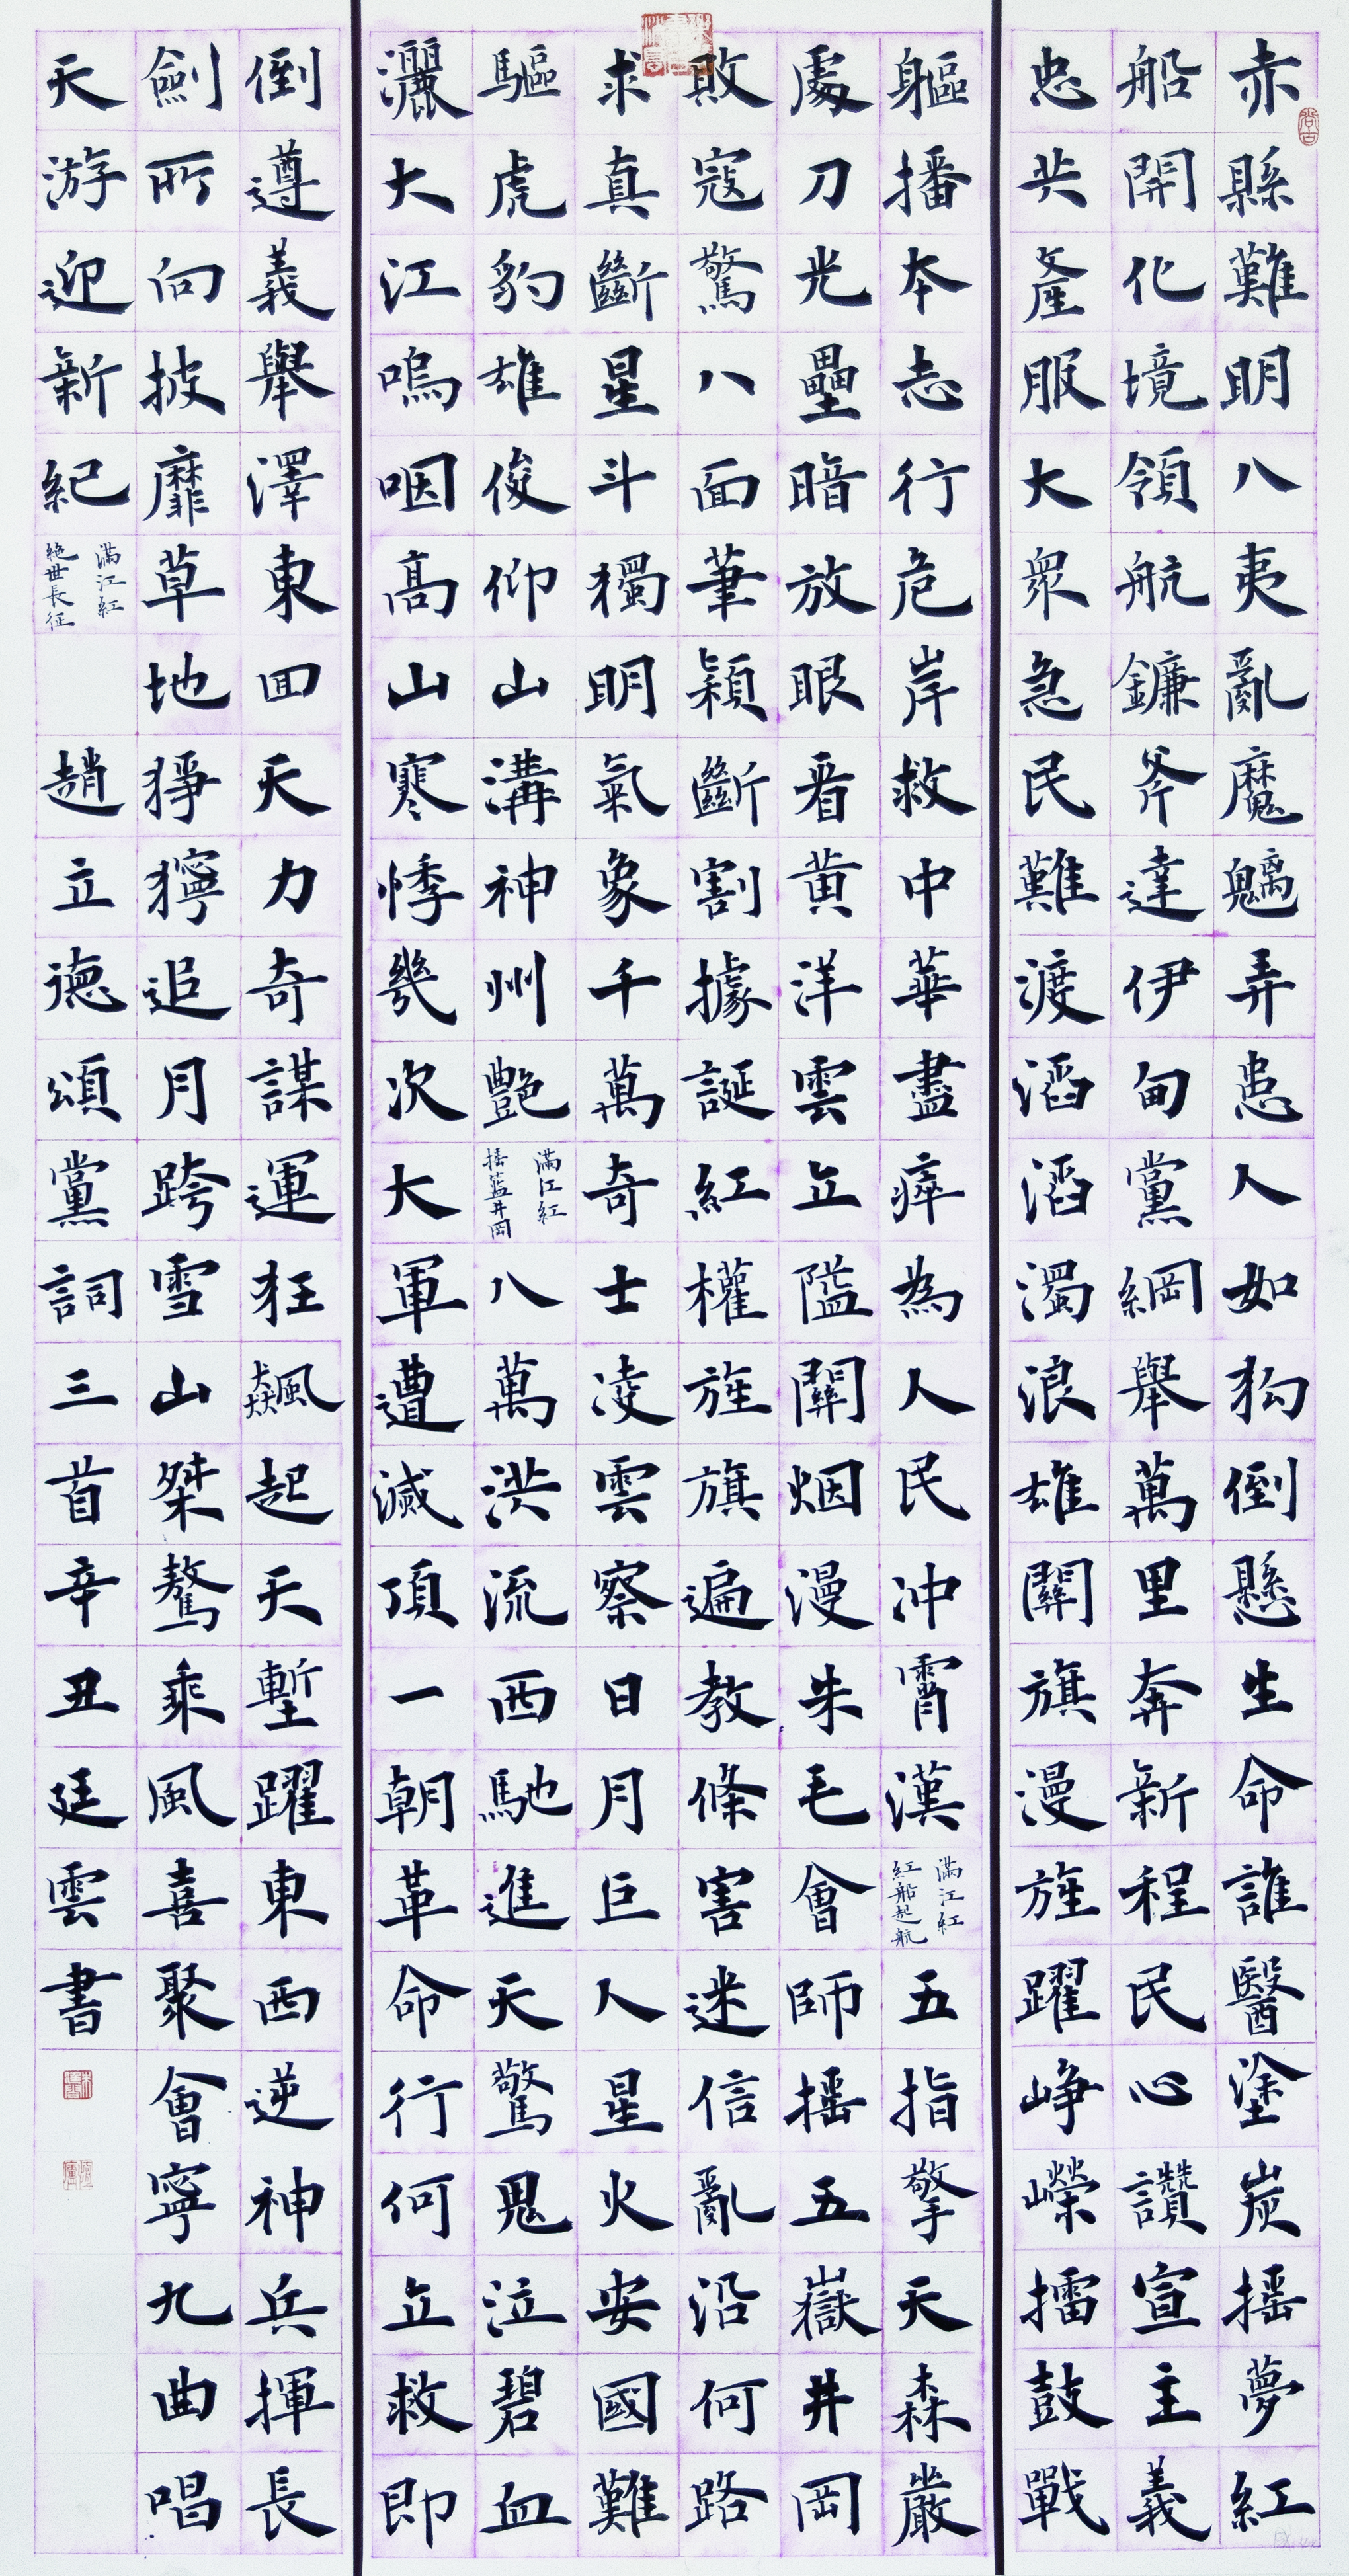 赤縣難明八夷亂魔魑弄患人如芻倒懸生命誰醫塗炭搖夢紅
船開化境領航鐮斧達伊甸黨綱舉萬里奔新程民心讚宣主義
忠共產服大眾急民難渡滔滔濁浪雄關旗漫旌躍崢嶸擂鼓戰
軀播本志行危岸救中華盡瘁為人民沖霄漢滿江紅紅船起航五指擎天森嚴
處刀光壘暗放眼看黃洋雲立隘關烟漫朱毛會師搖五嶽井岡
敗寇驚八面筆穎斷割據誕紅權旌旗遍教條害迷信亂沿何路
求真斷星斗獨明氣象千萬奇士凌雲察日月巨人星火安國難
驅虎豹雄俊仰山溝神州艷滿江紅搖籃井岡八萬洪流西馳進天驚鬼泣碧血
灑大江嗚咽高山寒悸幾次大軍遭滅頂一朝革命行何立救即
倒遵義舉澤東回天力奇謀運狂飆起天塹躍東西逆神兵揮長
劍所向披靡草地猙獰追月跨雪山桀驁乘風喜聚會寧九曲唱
天游迎新紀滿江紅絕世長征
趙立德頌黨詞三首辛丑廷雲書